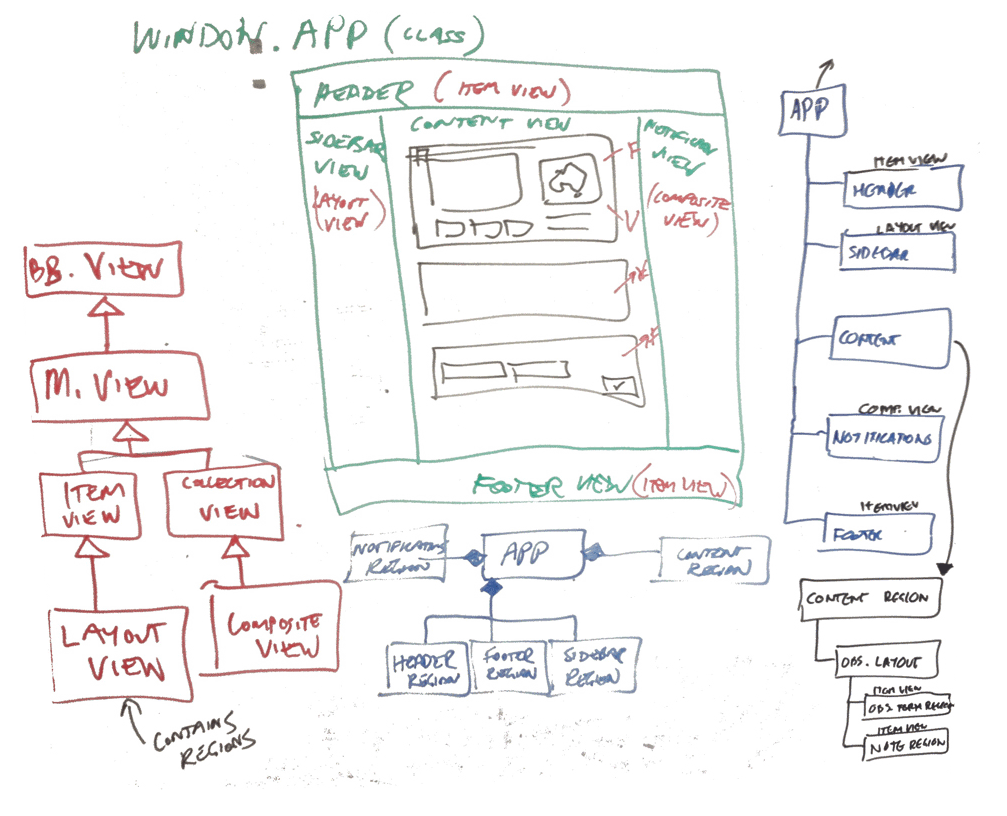 WINDOW.APP (CLASS)
HEADER (ITEM VIEW)
SIDEBAR
VIEW
(LAYOUT
VIEW)
CONTENT VIEW
F
V
VIEW
(COMPOSITE
VIEW)
FOOTER VIEW (ITEM VIEW)
BB. VIEW
M. VIEW
ITEM
VIEW
COLLECTION
VIEW
LAYOUT
VIEW
COMPOSITE
VIEW
CONTAINS
REGIONS
NOTIFICATIONS
REGION
APP
CONTENT
REGION
HEADER
REGION
FOOTER
REGION
SIDEBAR
REGION
APP
ITEM VIEW
HEADER
LAYOUT VIEW
SIDEBAR
CONTENT
COMP. VIEW
NOTIFICATIONS
ITEMVIEW
FOOTER
CONTENT REGION
OBS. LAYOUT
ITEM VIEW
OBS. FORM REGION
ITEM VIEW
NOTE REGION